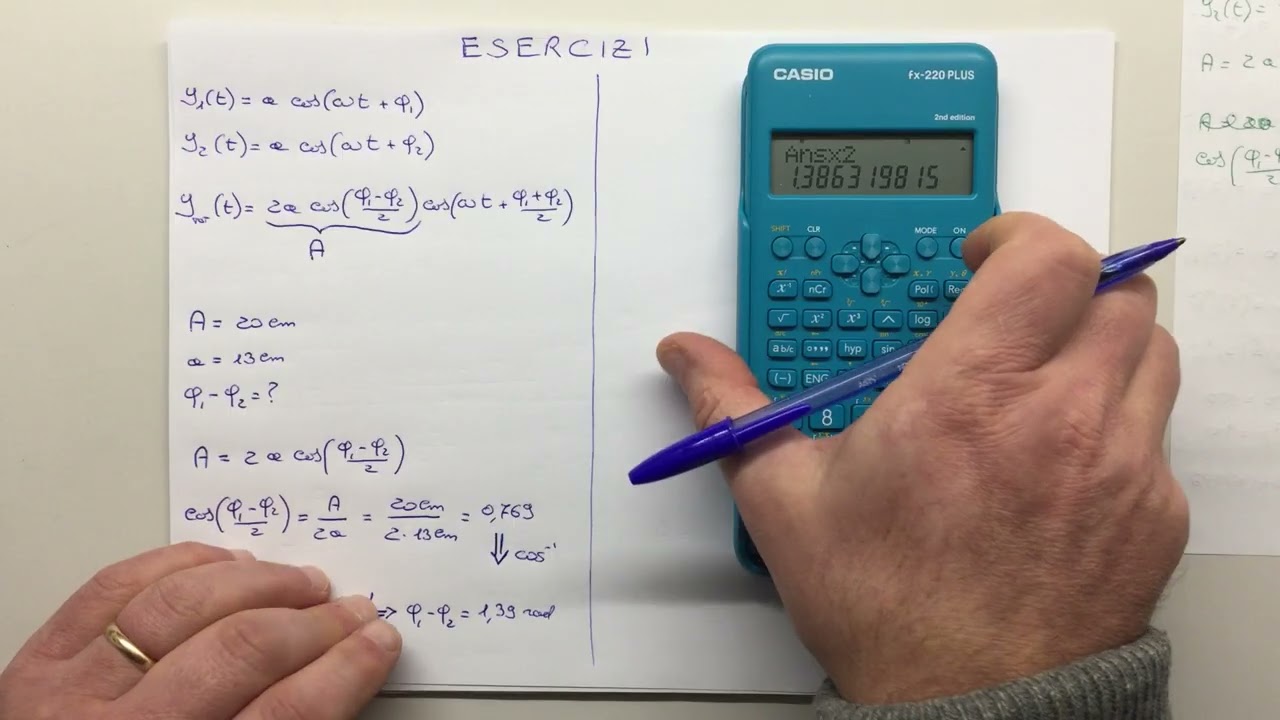 ESERCIZI
y₁(t) = a cos(ωt + φ₁)
y₂(t) = a cos(ωt + φ₂)
y_TOT(t) = 2a cos((φ₁-φ₂)/2) cos(ωt + (φ₁+φ₂)/2)
A
A = 20 cm
a = 13 cm
φ₁ - φ₂ = ?
A = 2 a cos((φ₁-φ₂)/2)
cos((φ₁-φ₂)/2) = A/2a = 20cm/2·13cm = 0,769
⇓ cos⁻¹
=> φ₁ - φ₂ = 1,39 rad
CASIO
fx-220 PLUS
2nd edition
Ans×2
1.386319815
SHIFT CLR MODE ON
x! nPr
x⁻¹ nCr Pol(
√ x² x³ ^ log
a b/c °,,, hyp sin
(-) ENG
8
y₂(t) =
A = 2 a
cos(